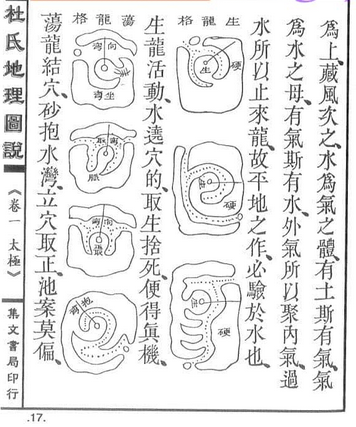 為上、藏風次之、水為氣之體、有土斯有氣、氣
為水之母、有氣斯有水、外氣所以聚內氣、過
水所以止來龍、故平地之作、必驗於水也、
生龍格
硬
生
硬
硬
生龍活動水遶穴的、取生捨死、便得眞機、
蕩龍格
蕩龍結穴、砂抱水灣、立穴取正、池案莫偏、
杜氏地理圖說
《卷一 太極》
集文書局印行
.17.